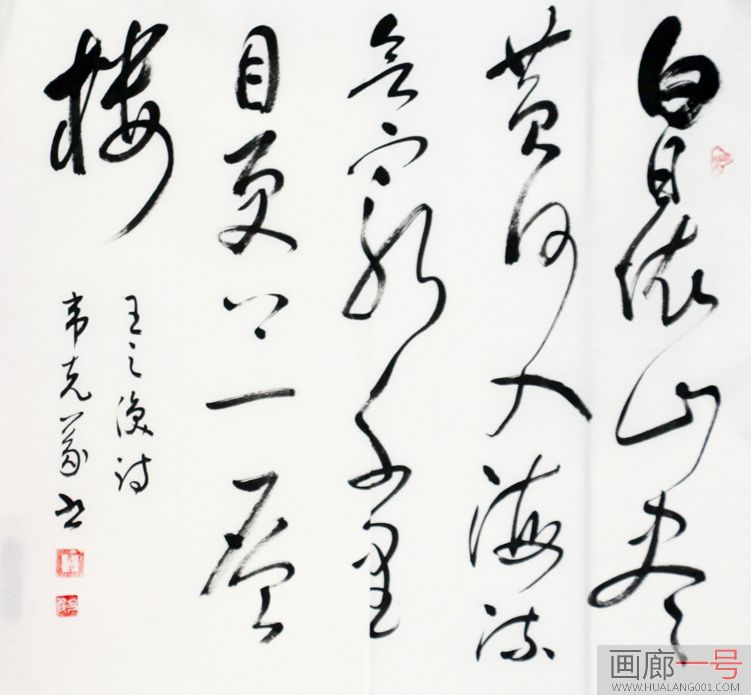 白日依山尽
黄河入海流
欲窮千里
目更上一層
楼
王之涣诗
韦克義书
画廊一号
WWW.HUALANG001.COM